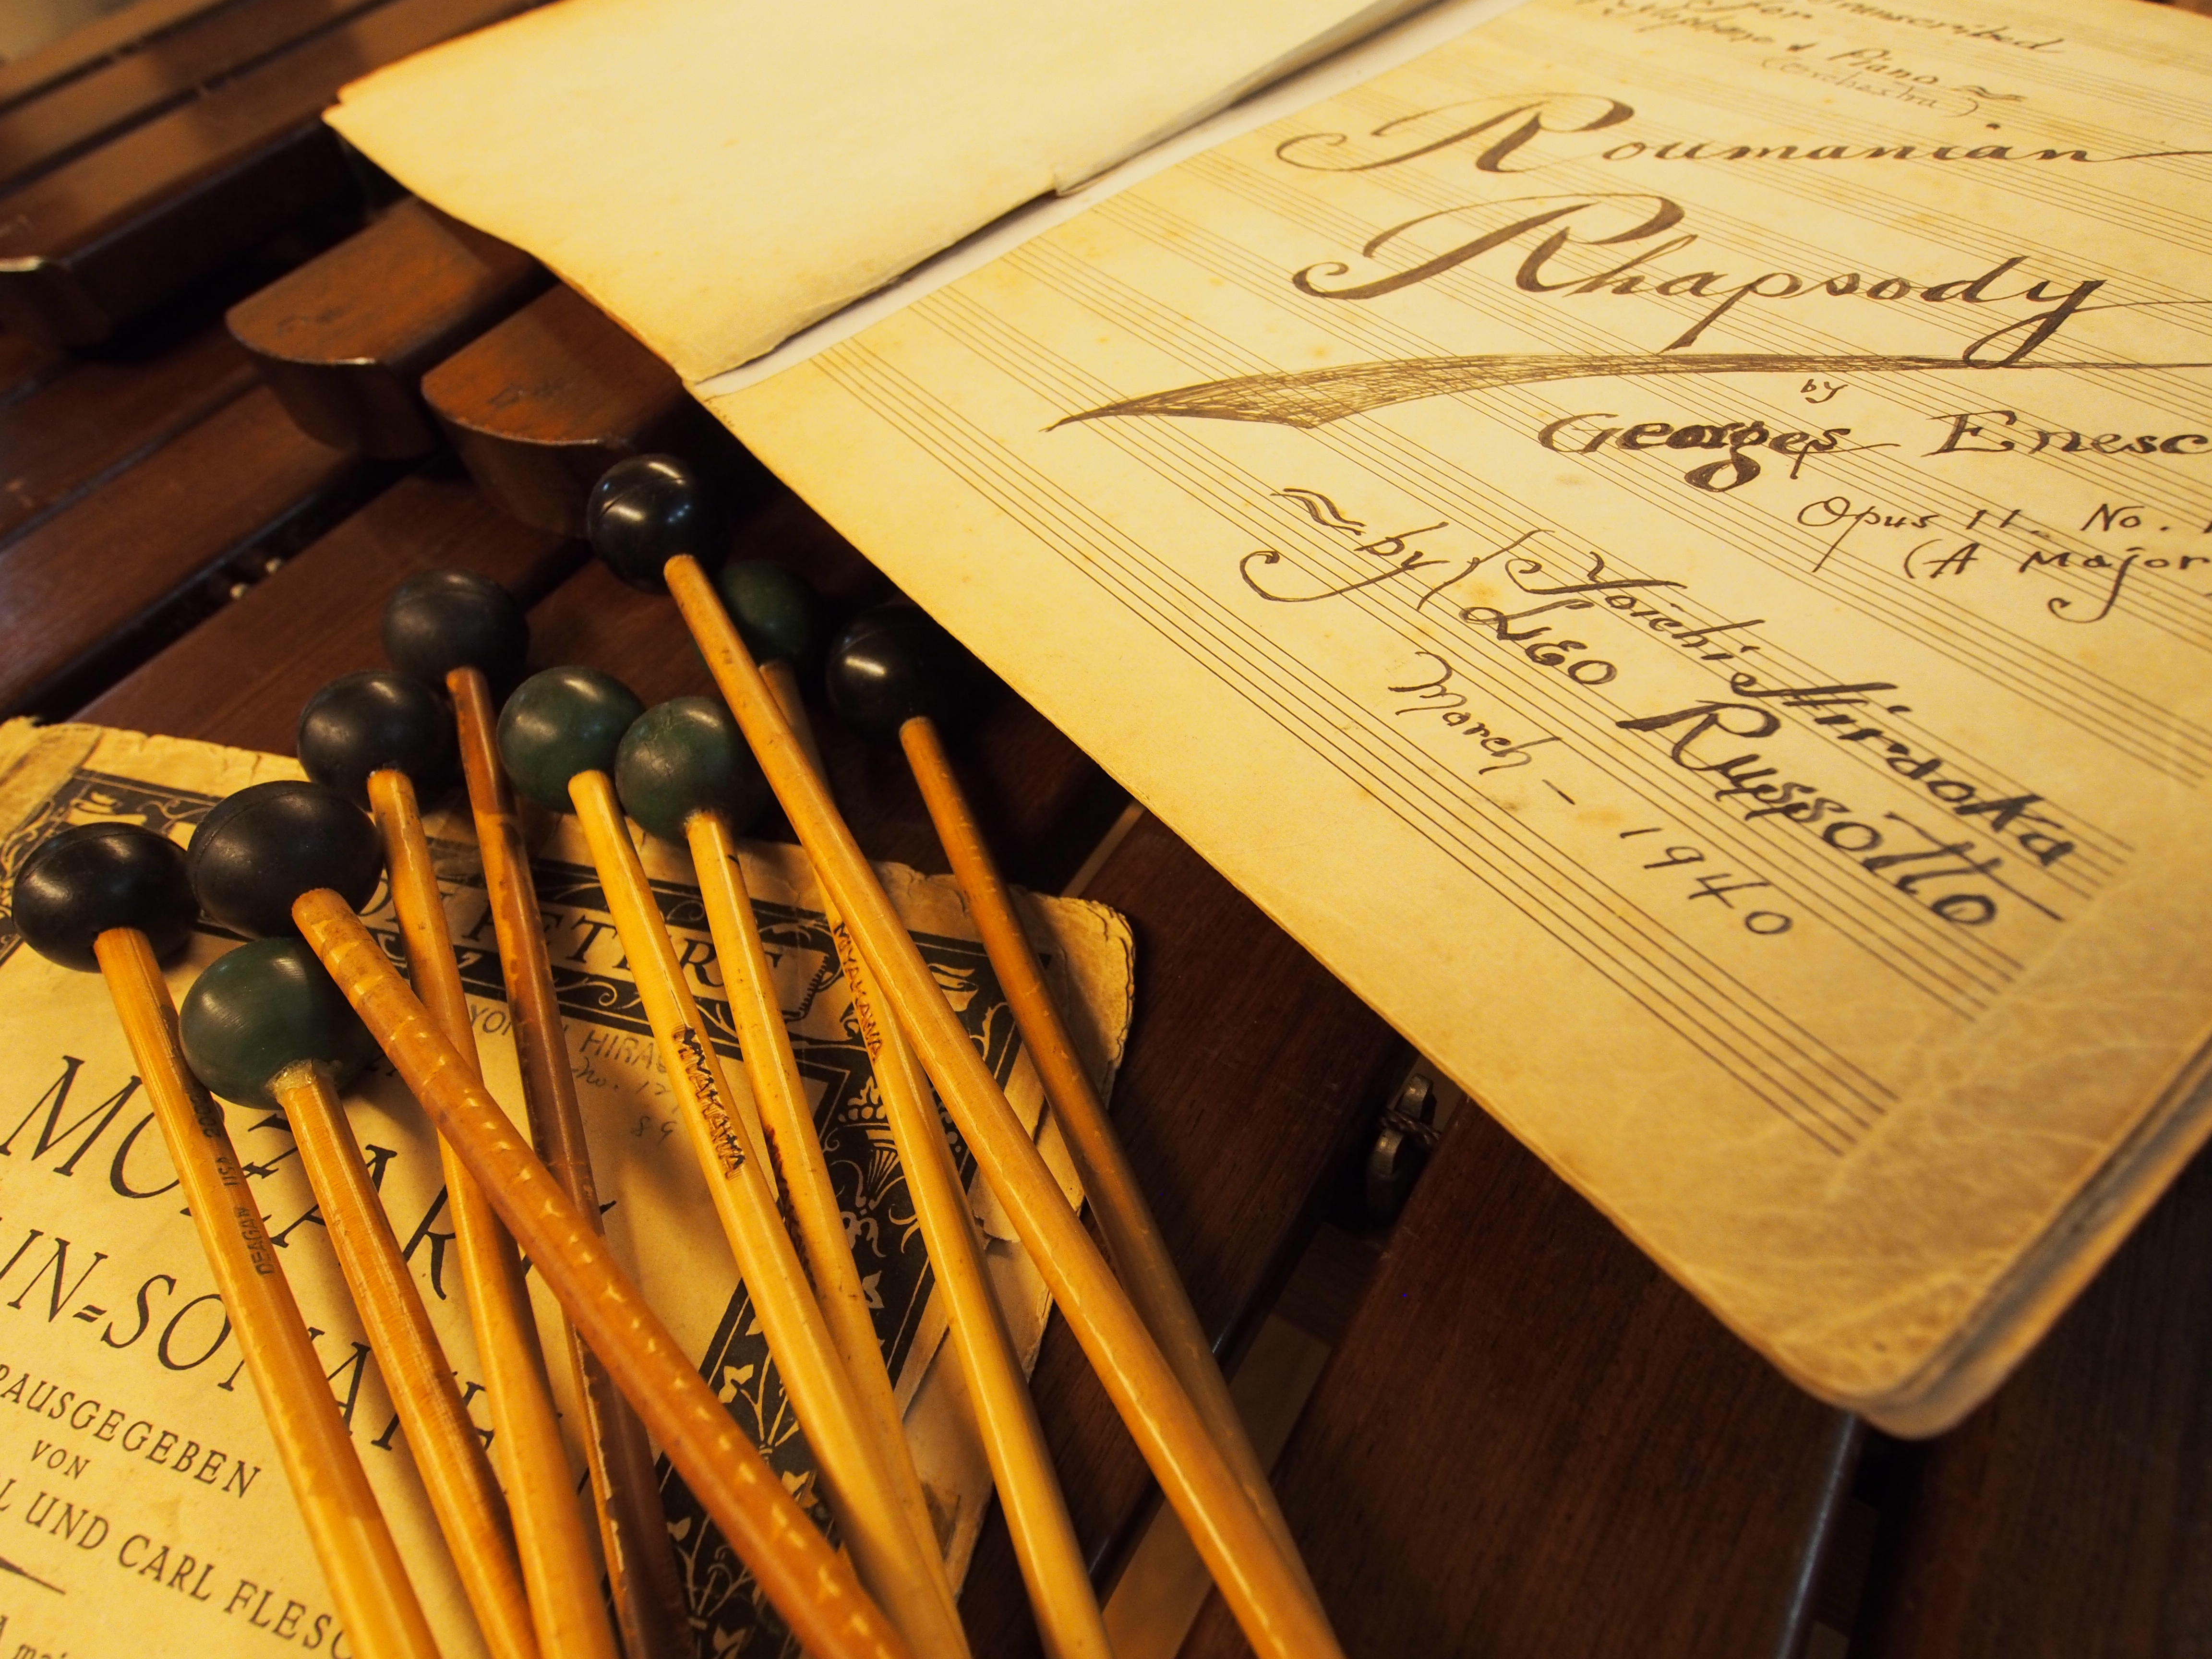 Transcribed
for
Xylophone & Piano
(orchestra)
Roumanian
Rhapsody
by
Georges Enesc
Opus 11. No. 1
(A Major
by { Yoichi Hiraoka
Leo Russotto
March - 1940
PETERS
HIRAO
no. 17
89
MOZART
IN=SONATE
RAUSGEGEBEN
VON
L UND CARL FLESC
DEAGAN USA 2002
MIYAKAWA
MIYAKAWA